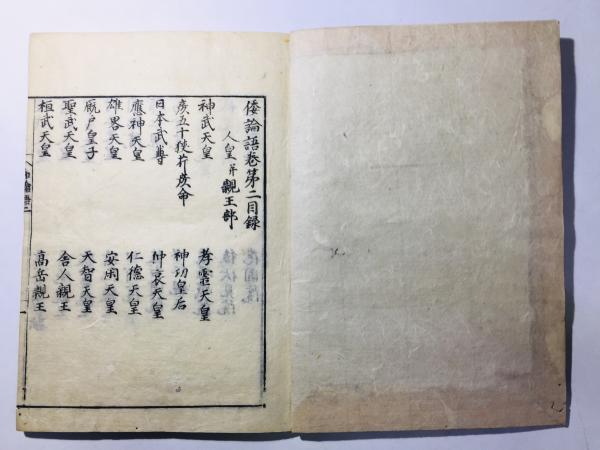 倭論語巻第二目録
人皇并親王部
神武天皇
孝霊天皇
彦五十狭芹彦命
神功皇后
日本武尊
仲哀天皇
應神天皇
仁徳天皇
雄畧天皇
安閑天皇
厩戸皇子
天智天皇
聖武天皇
舎人親王
桓武天皇
高岳親王